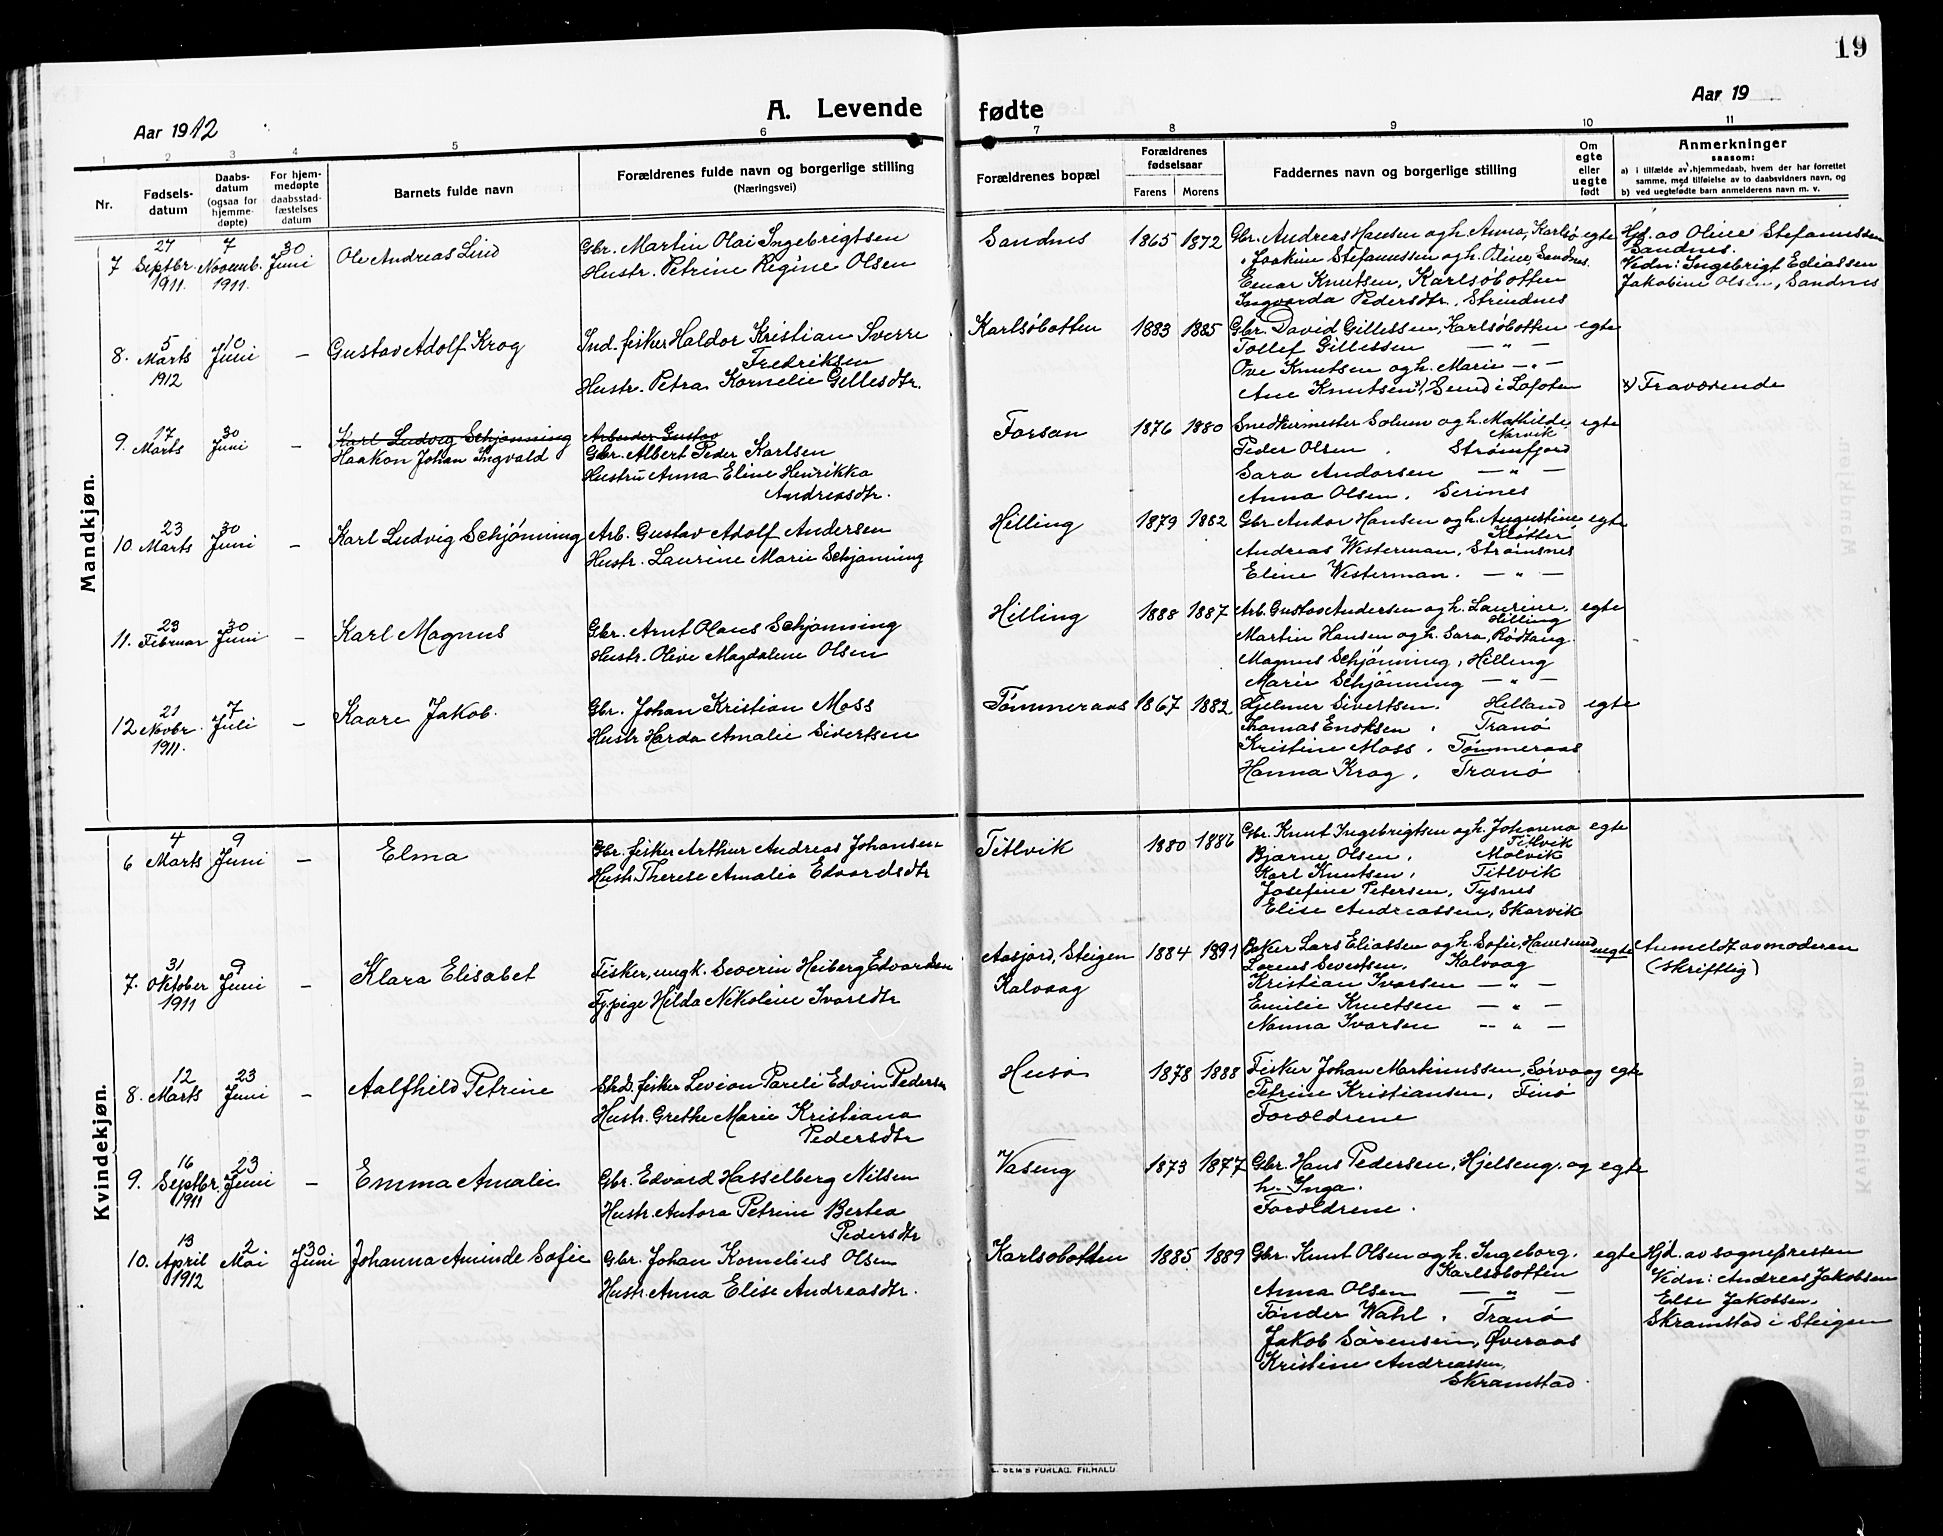 19
A. Levende fødte
Aar 1912
Aar 19
1 2 3 4 5 6 7 8 9 10 11
Nr.
Fødsels-
datum
Daabs-
datum
(ogsaa for
hjemme-
døpte)
For hjem-
medøpte
daabsstad-
fæstelses
datum
Barnets fulde navn
Forældrenes fulde navn og borgerlige stilling
(Næringsvei)
Forældrenes bopæl
Forældrenes
fødselsaar
Farens Morens
Faddernes navn og borgerlige stilling
Om
egte
eller
uegte
født
Anmerkninger
saasom:
a) i tilfælde av hjemmedaab, hvem der har forrettet
samme, med tilføielse av to daabsvidners navn, og
b) ved uegtefødte barn anmelderens navn m. v.
Mandkjøn.
7
27
Septbr.
1911.
7
Novemb.
1911.
30
Juni
Ole Andreas Lind
Gbr. Martin Olai Ingebrigtsen
Hustr. Petrine Regine Olsen
Sandnes
1865 1872
Gbr. Andreas Hansen og h. Anna, Karlsø
" Joakim Stefanussen og h. Oline, Sandnes.
Einar Knutsen, Karlsøbotten
Ingvarda Pedersdtr., Strindnes
egte
Hjd. av Oline Stefanussen
Sandnes.
Vidn: Ingebrigt Ediassen
Jakobine Olsen, Sandnes
8.
5
Marts
1912
10
Juni
–
Gustav Adolf Krog
Ind. fisker Haldor Kristian Sverre
Fredriksen
Hustr. Petra Kornelie Gillesdtr.
Karlsøbotten
1883 1885
Gbr. David Gillessen, Karlsøbotten
Tollef Gillessen — " —
Ove Knutsen og h. Marie — " —
Ane Knutsen x), Sund i Lofoten
egte
x) Fraværende
9.
17
Marts
30
Juni
–
Karl Ludvig Schjønning
Haakon Johan Ingvald
Arbeider Gustav
Gbr. Albert Peder Karlsen
Hustru Anna Eline Henrikka
Andreasdtr.
Forsan
1876 1880
Snedkermester Solum og h. Mathilde,
Narvik
Peder Olsen . Strømfjord
Sara Andorsen — " —
Anna Olsen . Serines
egte
10.
23
Marts
30
Juni
–
Karl Ludvig Schjønning
Arb. Gustav Adolf Andersen
Hustr. Laurine Marie Schjønning
Hilling
1879 1882
Gbr Andor Hansen og h. Augustine
Kløtter
Andreas Westerman, Strømsnes
Eline Westerman. — " —
egte
11.
23
Februar
30
Juni
–
Karl Magnus
Gbr. Arnt Olaus Schjønning
Hustr. Olive Magdalene Olsen
Hilling
1888 1887
Arb. Gustav Andersen og h. Laurine.
Hilling
Martin Hansen og h. Sara, Rødtang.
Magnus Schjønning, Hilling
Marie Schjønning — " —
egte
12
21
Novbr.
1911.
7
Juli
–
Kaare Jakob.
Gbr. Johan Kristian Moss
Hustr Harda Amalie Sivertsen
Tømmeraas
1867 1882
Hjelmer Sivertsen. Helland
Thomas Enoksen . Tranø
Kristine Moss . Tømmeraas
Hanna Krog . Tranø
egte
Kvindekjøn.
6
4
Marts
9
Juni
–
Elma
Gbr. fisker Arthur Andreas Johansen
Hustr. Therese Amalie Edvardsdtr
Titlvik
1880 1886
Gbr. Knut Ingebrigtsen og h. Johanna
Titlvik
Bjarne Olsen . Malvik
Karl Knutsen . Titlvik
Josefine Petersen, Tysnes
Elise Andreassen, Skarvik
egte
7.
31
Oktober
1911
9
Juni
–
Klara Elisabet
Fisker, ungk. Severin Heiberg Edvardsen
Fj.pige Hilda Nikoline Ivarsdtr
Aasjord, Steigen
Kalvaag
1884 1891
Baker Lars Eliassen og h. Sofie, Hamsund
Lorens Sivertsen. Kalvaag
Kristian Ivarsen — " —
Emilie Knutsen — " —
Nanna Ivarsen — " —
uegte
Anmeldt av moderen
(skriftlig)
8.
12
Marts
23
Juni
–
Aalfhild Petrine
Strd. fisker Levion Pareli Edvin Pedersen
Hustr. Grethe Marie Kristiana
Pedersdtr
Husø
1878 1888
Fisker Johan Markussen, Sørvaag
Petrine Kristiansen, Finø
Forældrene
egte
9.
16
Septbr.
1911
23
Juni
–
Emma Amalie
Gbr. Edvard Hasselberg Nilsen
Hustr. Antora Petrine Bertea
Pedersdtr
Vaseng
1873 1877
Gbr. Hans Pedersen, Hjelseng. og
h. Inga.
Forældrene .
egte
10.
13
April
1912
2
Mai
30
Juni
Johanna Aminde Sofie
Gbr. Johan Kornelius Olsen
Hustr. Anna Elise Andreasdtr.
Karlsøbotten
1885 1889
Gbr. Knut Olsen og h. Ingeborg.
Karlsøbotten
Anna Olsen — " —
Tønder Wahl . Tranø
Jakob Sørensen, Øveraas
Kristine Andreassen,
Skramstad.
egte
Hjd. av sognepresten
Vidn: Andreas Jakobsen
Else Jakobsen.
Skramstad i Steigen
E. SEM'S FORLAG, FR.HALD